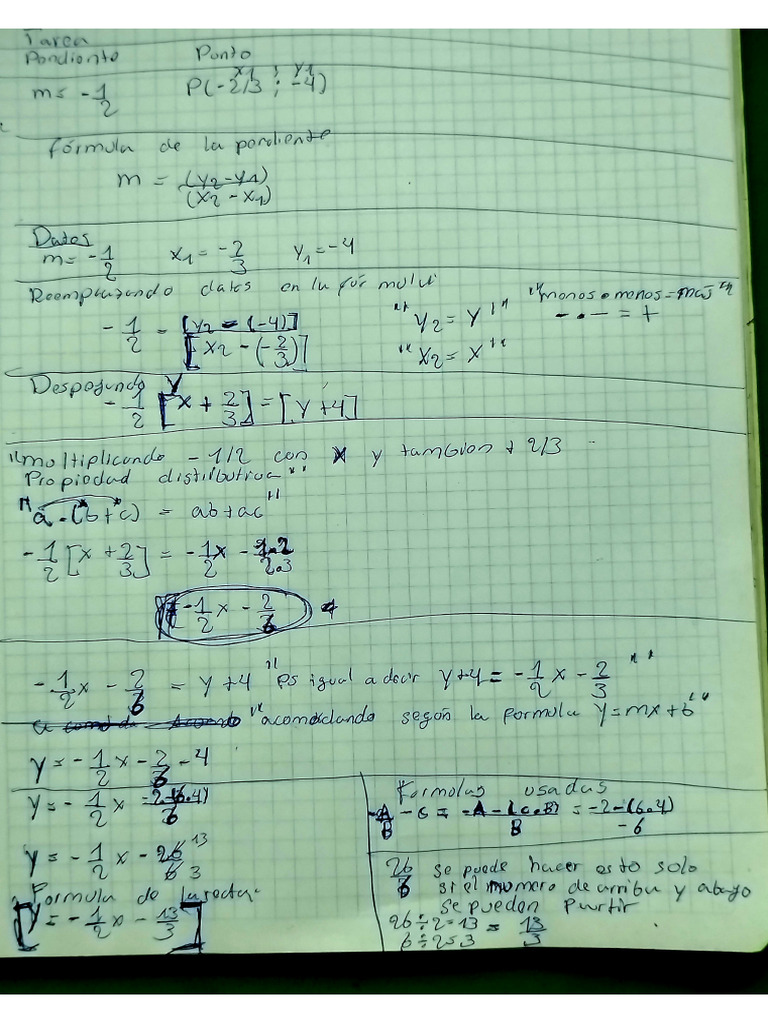 Tarea
Pondiente Punto
x1 ; y1
m = -1/2 P(-2/3 ; -4)
fórmula de la pondiente
m = (y2-y1)/(x2-x1)
Datos
m = -1/2 x1 = -2/3 y1 = -4
Reemplazando datos en la fór mula
-1/2 = [y2 - (-4)]/[x2 - (-2/3)] "y2 = y" "x2 = x" "monos • menos = mas"
- . - = +
Despejando y
-1/2 [x + 2/3] = [y + 4]
"multiplicando -1/2 con x y tambien + 2/3
Propiedad distributiva"
"a . (b + c) = ab + ac"
-1/2 [x + 2/3] = -1/2x - 1.2/2.3
-1/2x - 2/6
-1/2x - 2/6 = y + 4 "es igual a decir y + 4 = -1/2x - 2/3"
a "acomodando según la formula y = mx + b"
y = -1/2x - 2/6 - 4
y = -1/2x -2-(6.4)/6
y = -1/2x - 26/6 13/3
Formula de la recta
y = -1/2x - 13/3
Formulas usadas
-A/B - C = -A - (C.B)/B = -2-(6.4)/-6
26/6 se puede hacer esto solo
si el numero de arriba y abajo
se pueden partir
26 ÷ 2 = 13 = 13/3
6 ÷ 2 = 3